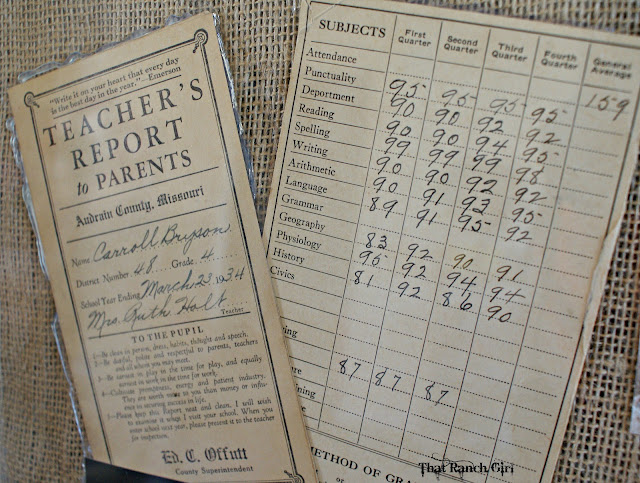 "Write it on your heart that every day
is the best day in the year." —Emerson
TEACHER'S
REPORT
to PARENTS
Audrain County, Missouri
Name Carroll Bryson
District Number 48 Grade 4
School Year Ending March 23 1934
Mrs. Ruth Holt
Teacher
TO THE PUPIL
1—Be clean in person, dress, habits, thought and speech.
2—Be dutiful, polite and respectful to parents, teachers
and all whom you may meet.
3—Be earnest in play in the time for play, and equally
earnest in work in the time for work.
4—Cultivate promptness, energy and patient industry.
They are worth more to you than money or influence
in securing success in life.
5—Please keep this Report neat and clean. I will wish
to examine it when I visit your school. When you
enter school next year, please present it to the teacher
for inspection.
Ed. C. Offutt
County Superintendent
SUBJECTS First Quarter Second Quarter Third Quarter Fourth Quarter General Average
Attendance 159
Punctuality
Deportment 95 95 95 95
Reading 90 90 92 92
Spelling 90 90 94 95
Writing 99 99 99 98
Arithmetic 90 90 92 92
Language 90 91 93 95
Grammar 89 91 95 92
Geography
Physiology 83 92 90 91
History 95 92 94 94
Civics 81 92 86 90
87 87 87
METHOD OF GRA
That Ranch Girl